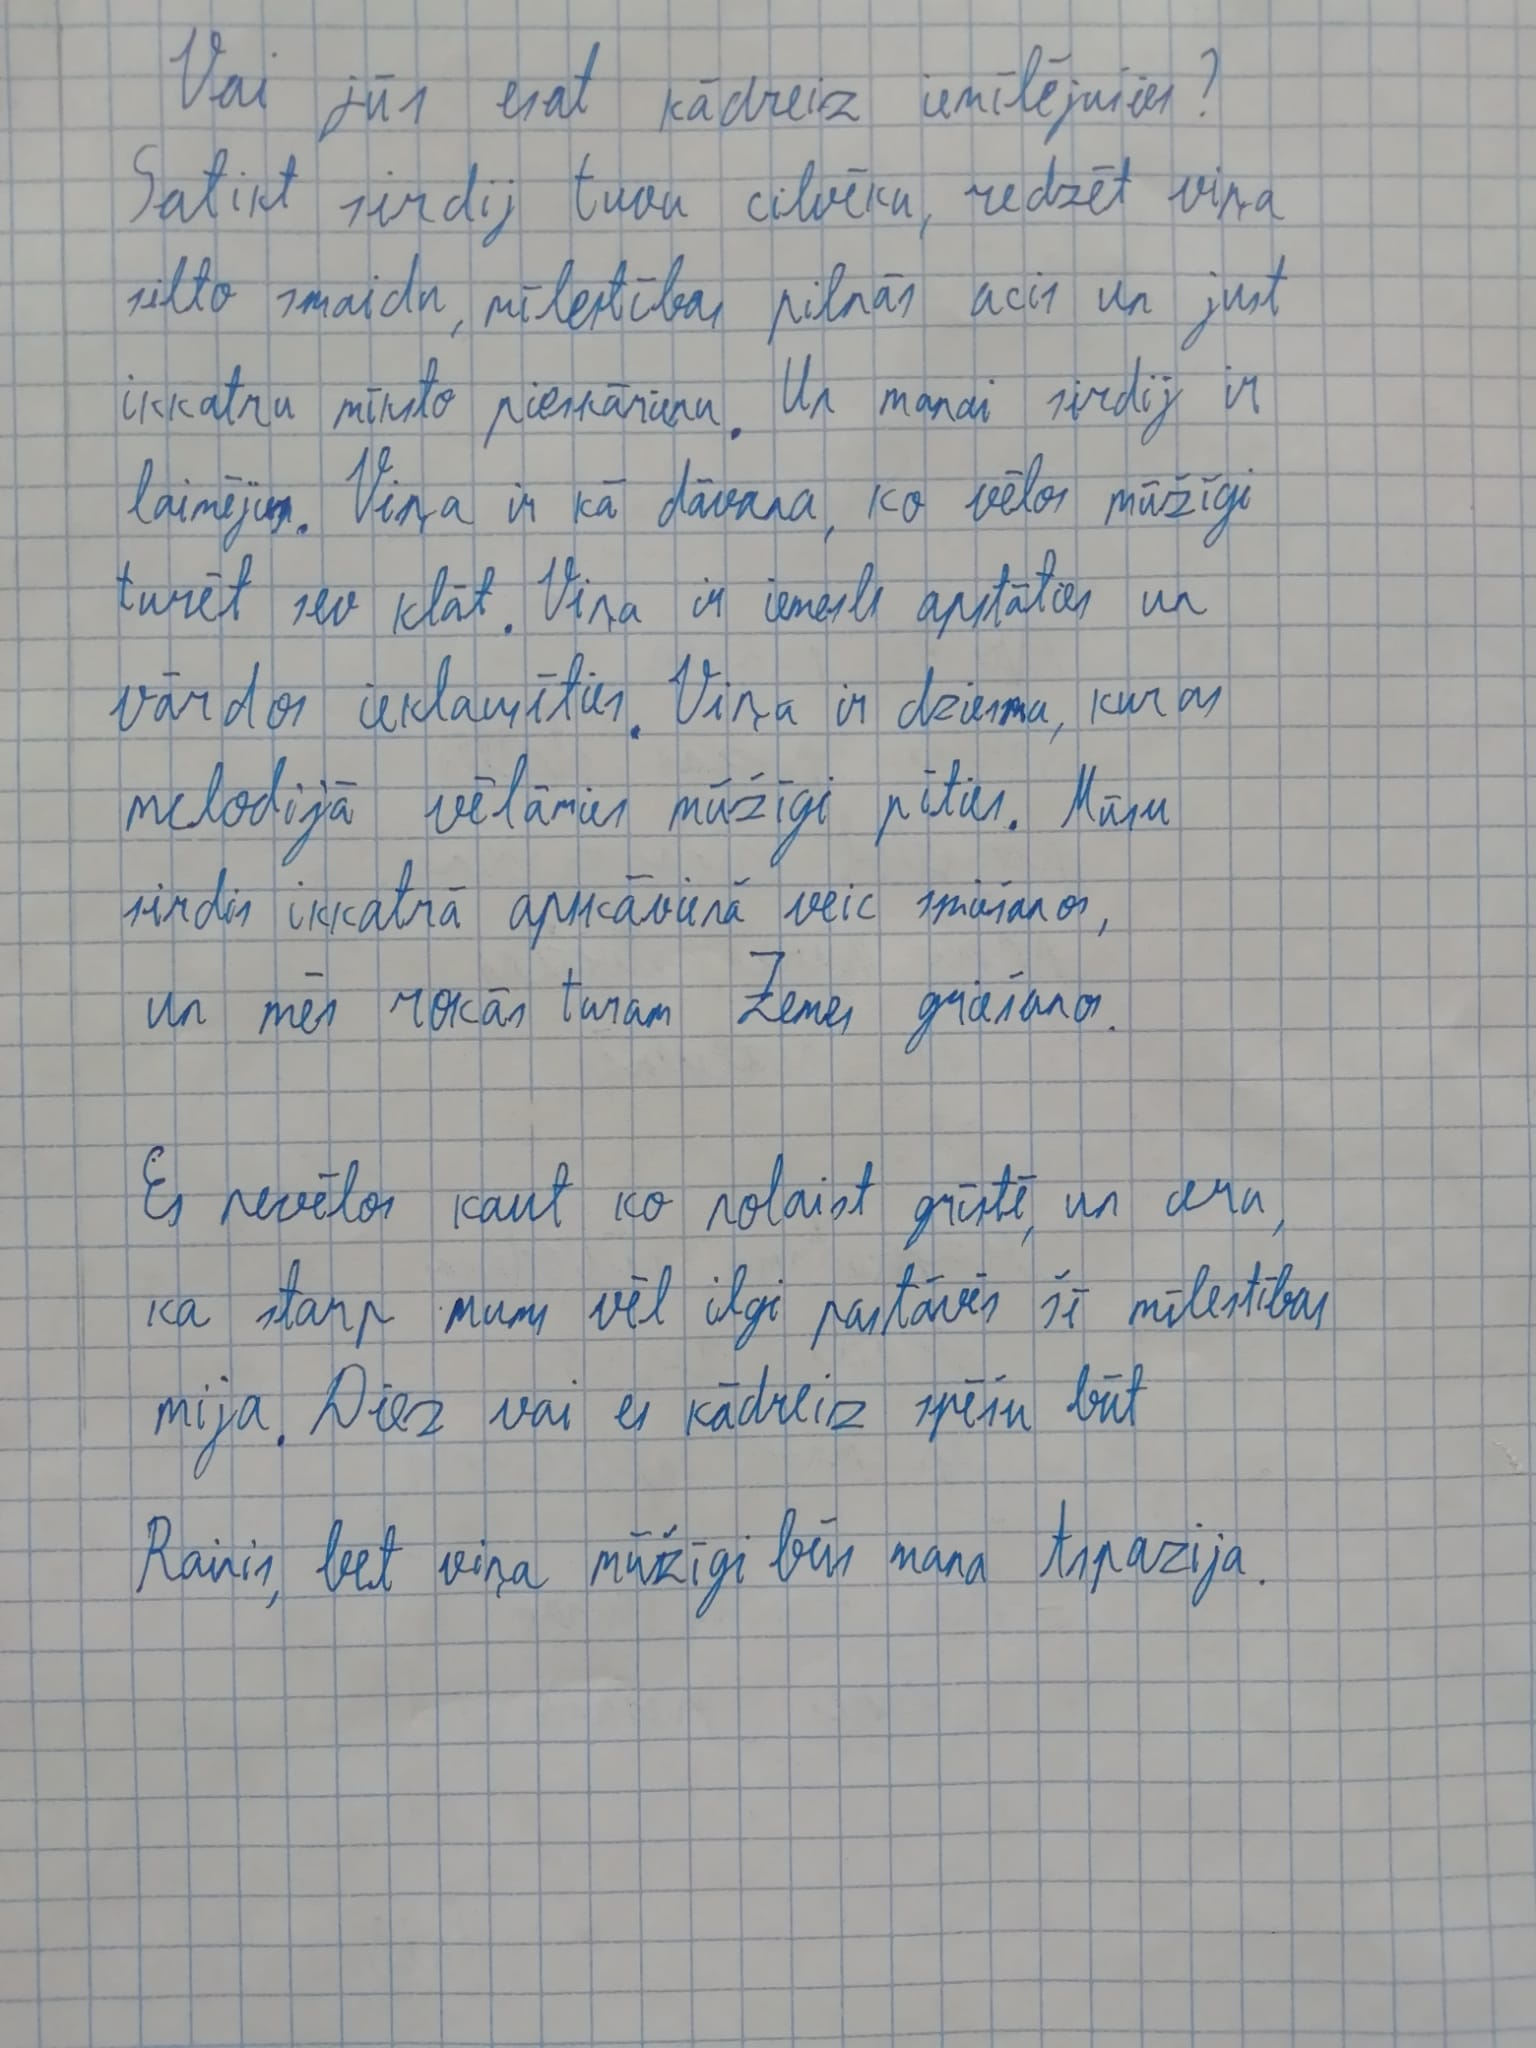 Vai jūs esat kādreiz iemīlējušies?
Satikt sirdij tuvu cilvēku, redzēt viņa
silto smaidu, mīlestības pilnās acis un just
ikkatru mīksto pieskārienu. Un manai sirdij ir
laimējies. Viņa ir kā dāvana, ko vēlos mūžīgi
turēt sev klāt. Viņa ir iemesls apstāties un
vārdos ieklausīties. Viņa ir dziesma, kuras
melodijā vēlāmies mūžīgi pīties. Mūsu
sirdis ikkatrā apskāvienā veic smiešanos,
un mēs rokās turam Zemes griešanos.
Es nevēlos kaut ko nolaist grīstē, un ceru,
ka starp mums vēl ilgi pastāvēs šī mīlestības
mija. Diez vai es kādreiz spēšu būt
Rainis, bet viņa mūžīgi būs mana Aspazija.